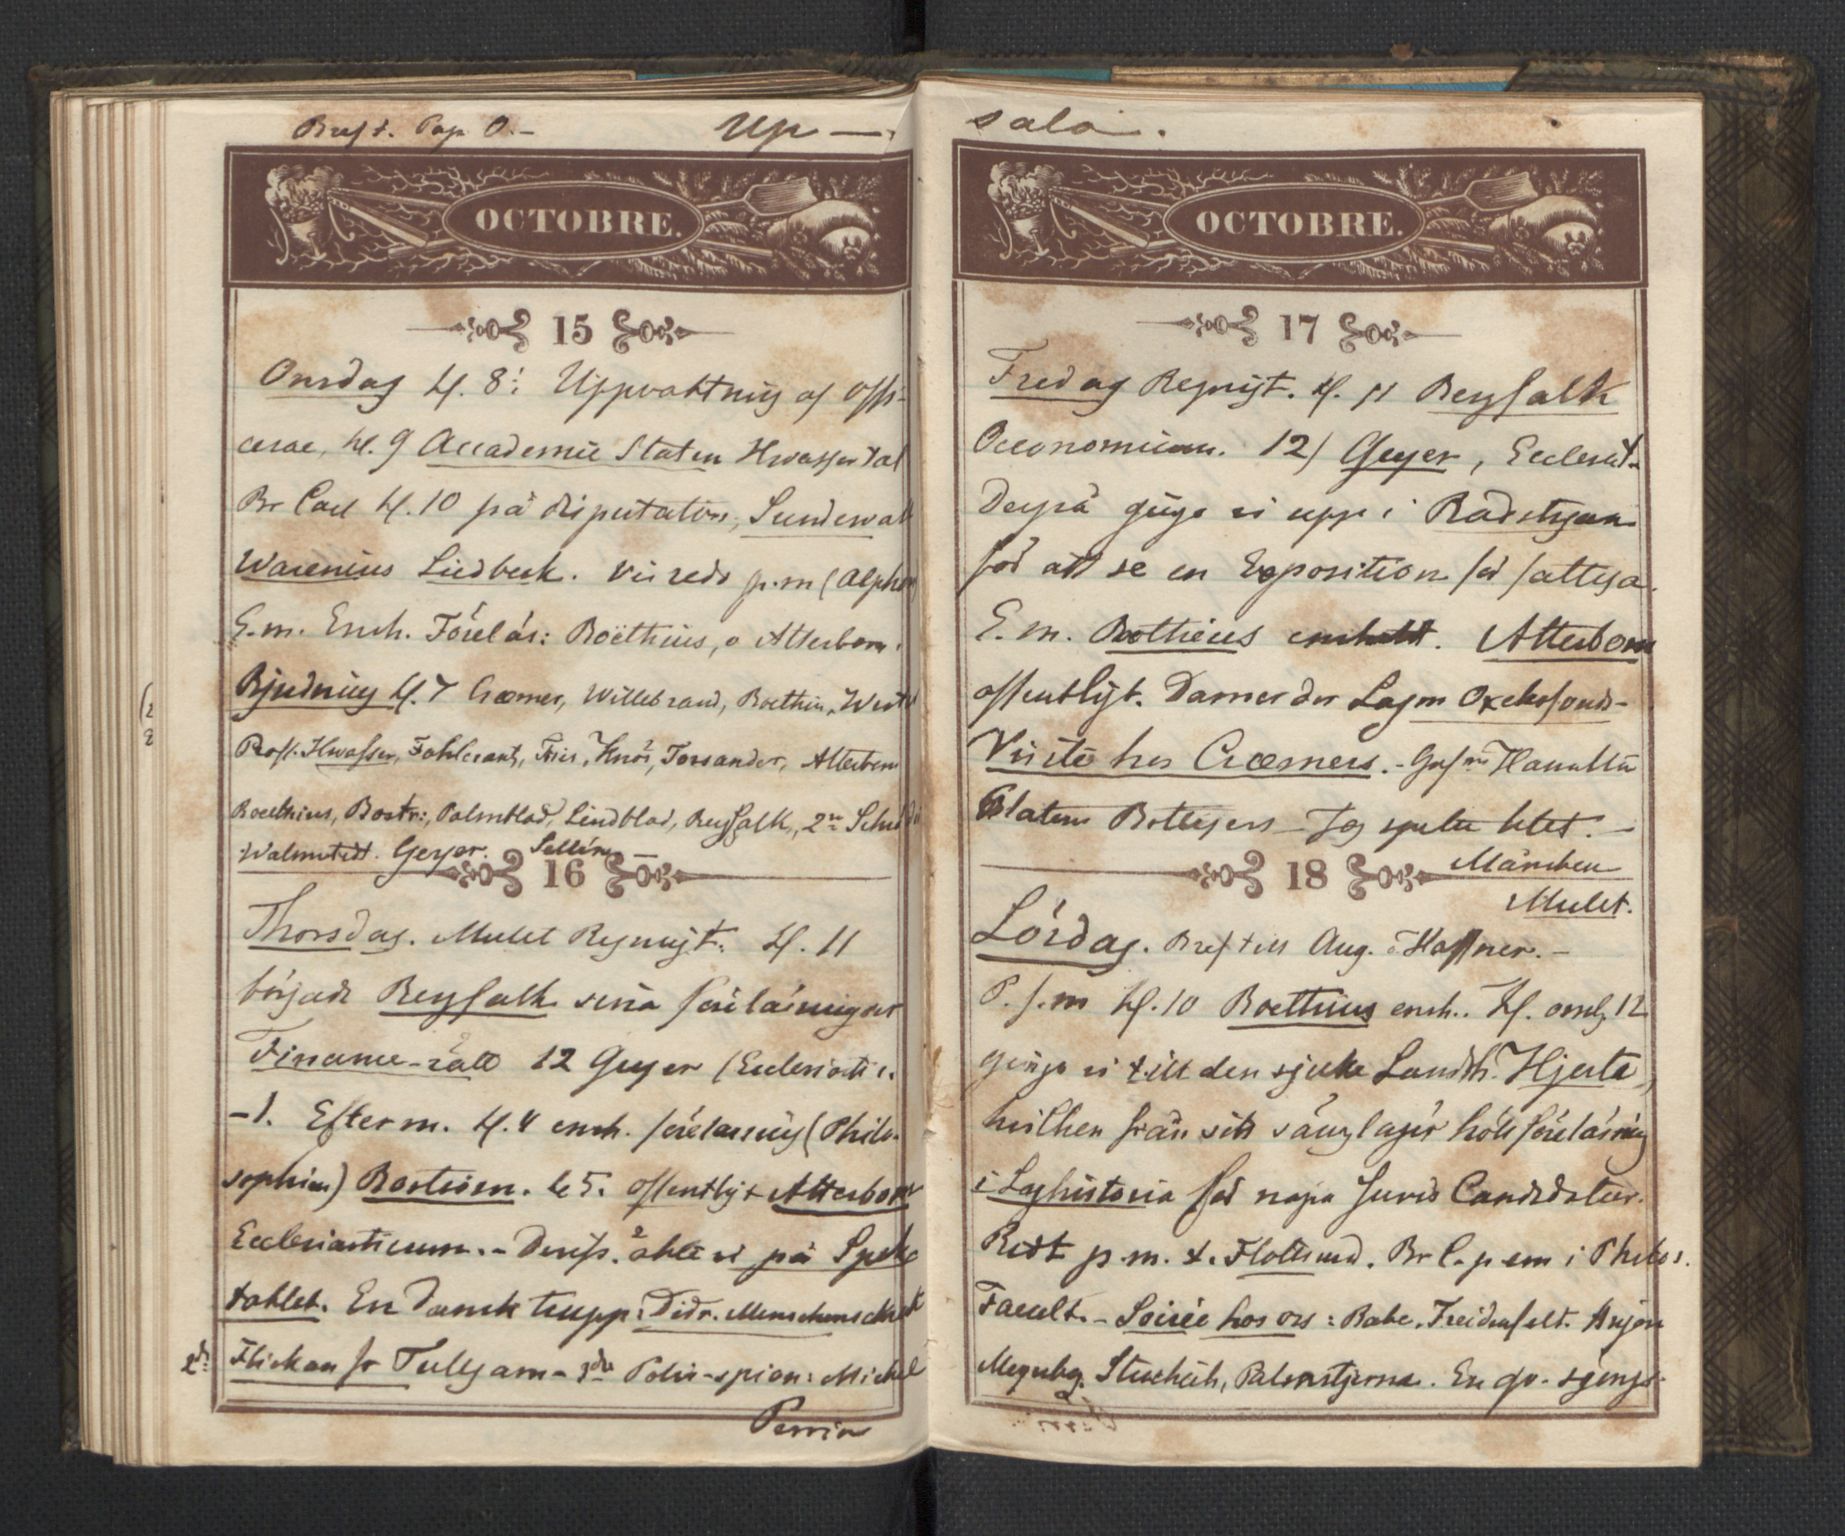 Bref t. Pap O.– Up –
OCTOBRE.
15
Onsdag kl. 8: Uppvaktning af Offi-
cerae, kl. 9 Accademie Staten Hwasser tal
Br Carl kl. 10 på disputation, Sundewall
Warenius Liedbeck. Vi redo p.m (Alphon)
E.m. Ensk. Föreläs: Boëthius, o Atterbom.
Bjudning kl. 7 Cræmer, Willebrand, Boethius,
Prof. Hwasser, Fahlcrantz, Fries, Knös, Torsander, Atterbom
Boethius, Boström, Palmblad, Lindblad, Bergfalk, 2ne
Walmstedt. Geyer. Sellén –
16
Thorsdag. Mulet Regnigt. kl. 11
började Bergfalk sina föreläsningar
Finance-rätt 12 Geyer (Ecclesiasti c.
– 1. Efterm. kl. 4 ensk. föreläsning (Philo-
sophien) Boström. kl 5. offentligt Atterbom
Ecclesiasticum. – Deref. åkte vi på Spek-
taklet. En Dansk trupp: Didr. Menschenskräk
2dr Flickan fr Tullgarn – 3die Polis-spion: Michel
Perrin
sala.
OCTOBRE.
17
Fredag Regnigt. kl. 11 Bergfalk
Oeconomicum. 12) Geyer, Ecclesiast.
Derpå gingo vi upp i Radstugan
för att se en Exposition för fattiga.
E. m. Boethius enskildt. Atterbom
offentligt. Damer der Lagm Oxehofvud–
Visite hos Cræmers. – Grefvin Hamilton
Platens Böttigers – Jag spelte litet. –
18
Märchen
Mulet.
Lördag. Bref till Aug. o Haffner. –
P. f.m kl. 10 Boethius ensk.. Kl. omkg 12
gingo vi till den sjuke Landsh. Hjerta,
hvilken från sitt sänglager höll föreläsning
i Laghistoria för några Juris Candidater.
Ridt p.m. t. Flottsund. Br C. p em i Philos.
Facult. – Soirée hos oss: Rabe, Freidenfelt. Anjou
Palmstjerna. En qv. sjöngs.